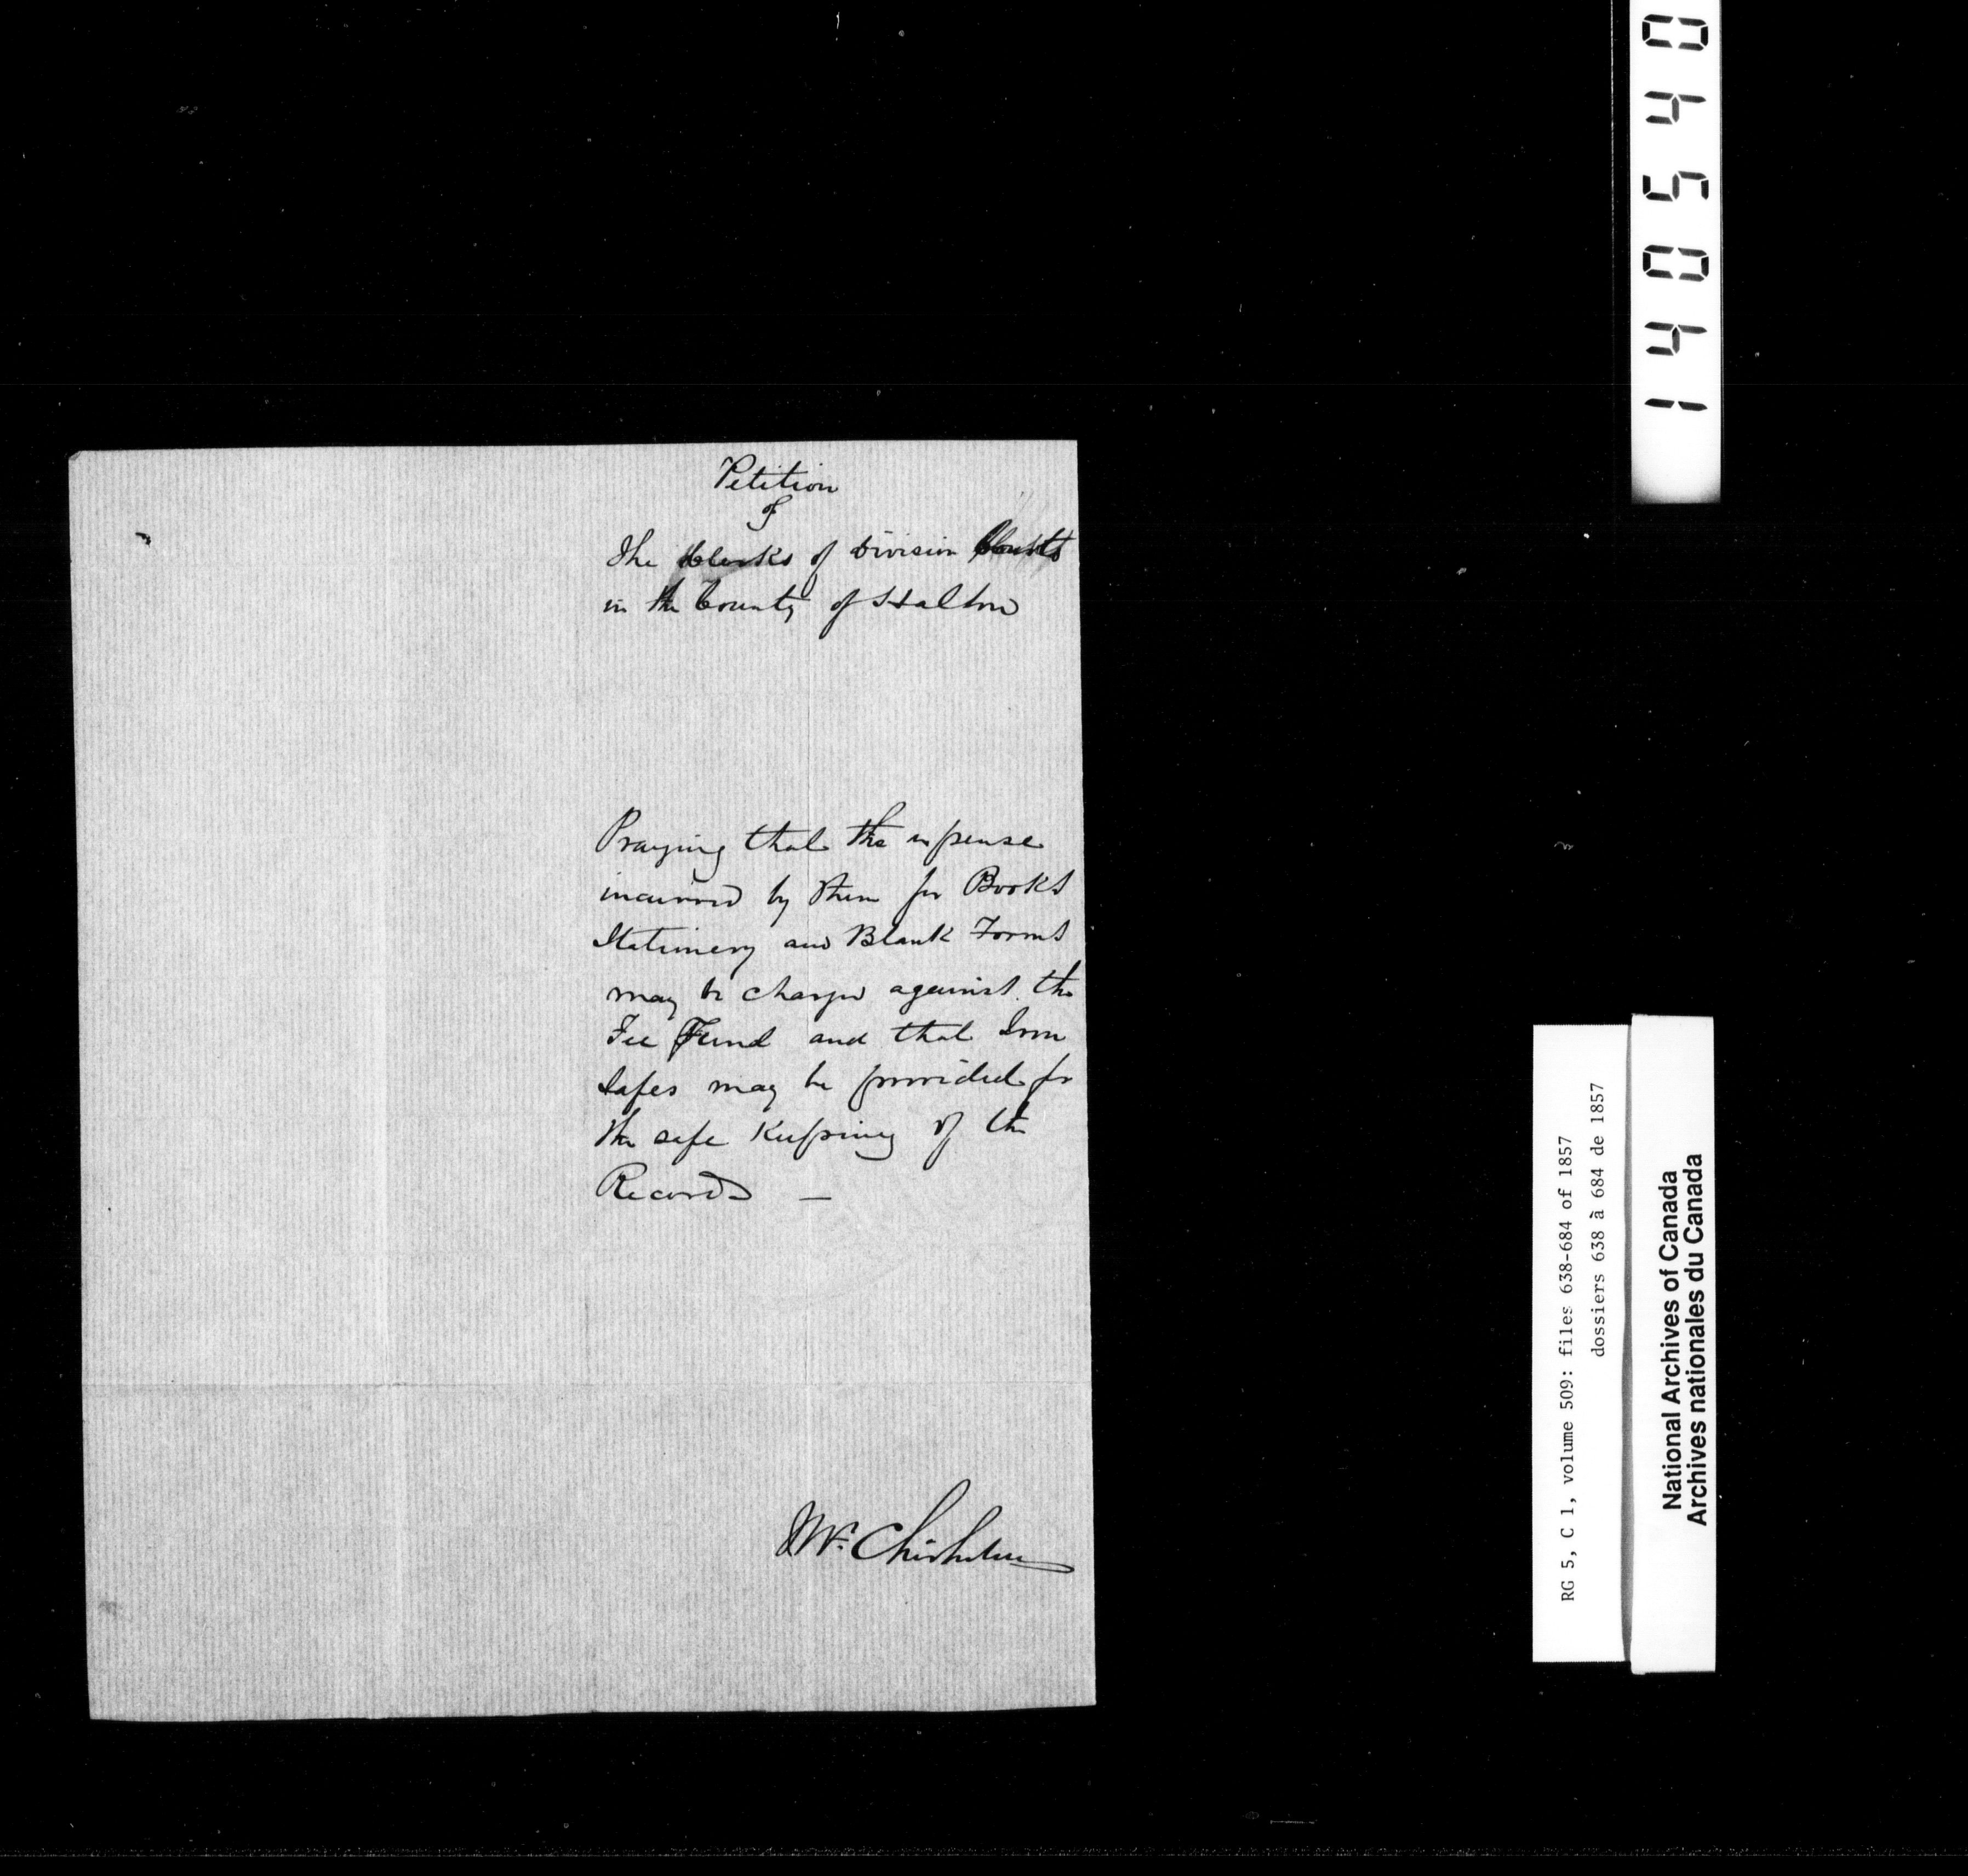 Petition
of
The Clerks of Division Courts
in the County of Halton
Praying that the expense
incurred by them for Books
Stationery and Blank Forms
may be charged against the
Fee Fund and that Iron
Safes may be provided for
the safe Keeping of the
Records —
Chisholm
140540
RG 5, C 1, volume 509: files 638-684 of 1857
dossiers 638 à 684 de 1857
National Archives of Canada
Archives nationales du Canada